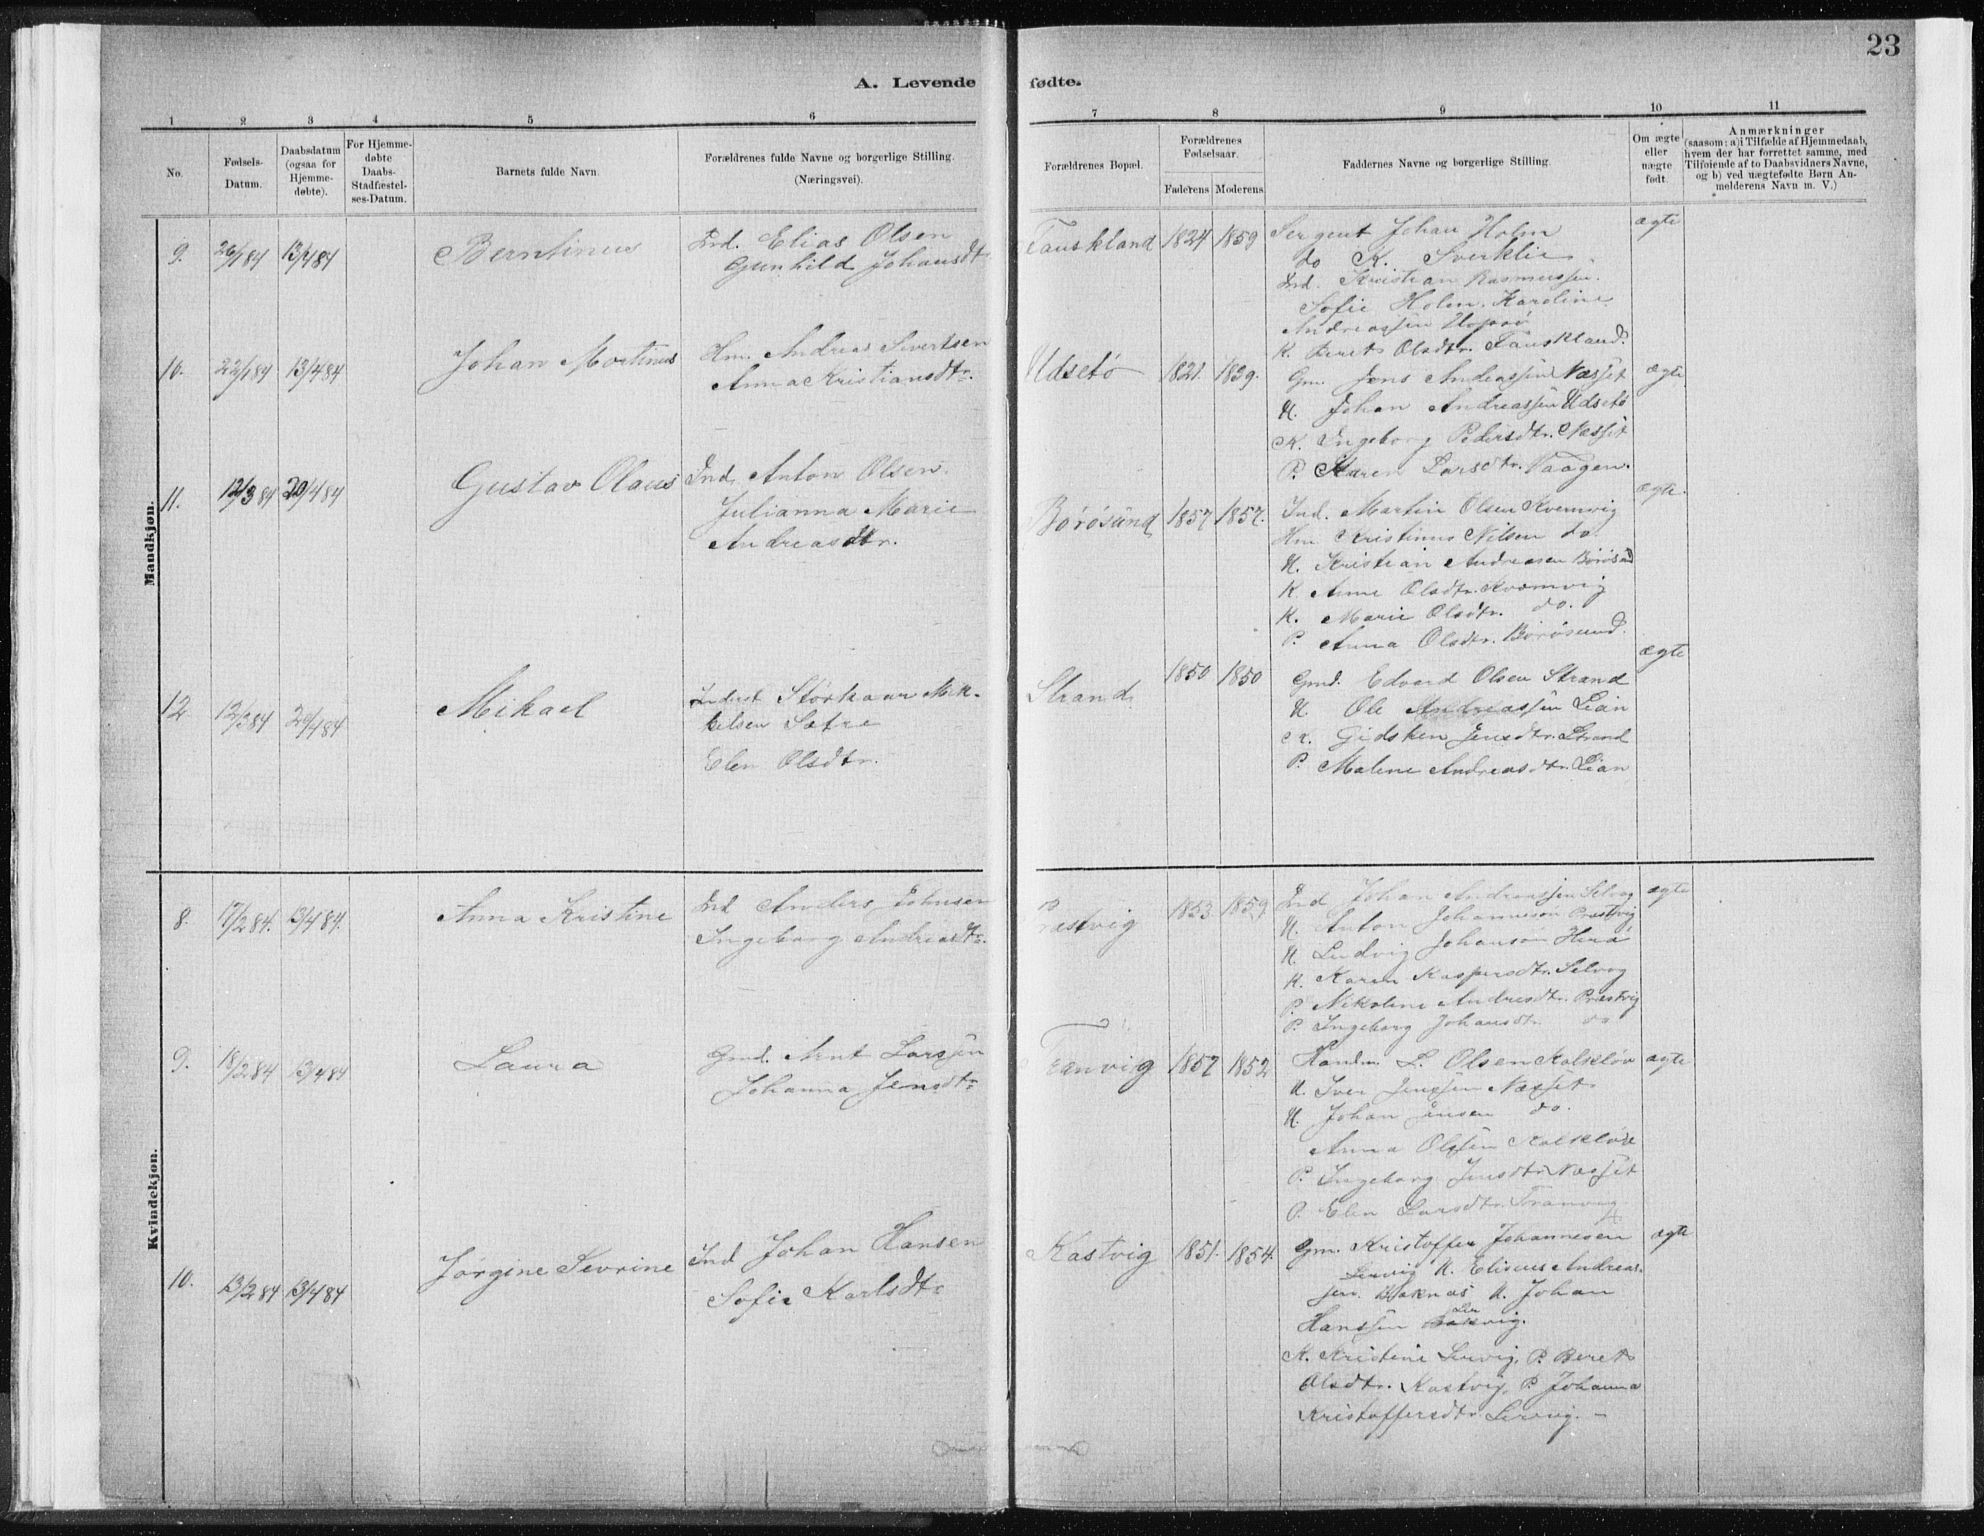 23
A. Levende fødte.
1 2 3 4 5 6 7 8 9 10 11
No.
Fødsels-
Datum.
Daabsdatum
(ogsaa for
Hjemme-
døbte).
For Hjemme-
døbte
Daabs-
Stadfæstel-
ses-Datum.
Barnets fulde Navn.
Forældrenes fulde Navne og borgerlige Stilling.
(Næringsvei).
Forældrenes Bopæl.
Forældrenes
Fødselsaar.
Faderens Moderens
Faddernes Navne og borgerlige Stilling.
Om ægte
eller
uægte
født.
Anmærkninger
(saasom: a) i Tilfælde af Hjemmedaab,
hvem der har forrettet samme, med
Tilføiende af to Daabsvidners Navne,
og b) ved uægtefødte Børn An-
melderens Navn m. V.)
Mandkjøn.
9. 26/1 84 13/4 84 Berntinus
Ind. Elias Olsen
Gunhild Johansdtr
Fauskland 1824 1859
Sergent Johan Holm
do K. Sverklie
Ind. Kristian Rasmussen
Sofie Holm. Karoline
Andreassen
K. Beret Olsdtr. Fauskland.
ægte
10. 22/1 84 13/4 84 Johan Mortinus
Hm. Andreas Sivertsen
Anna Kristiansdtr.
Udsetø 1821. 1839.
Gm. Jens Andreassen Næsset
U. Johan Andreassen Udsetø
K. Ingeborg Pedersdtr. Næsset
P. Karen Larsdtr. Vaagen.
ægte
11. 12/3 84 20/4 84 Gustav Olaus
Ind. Anton Olsen
Julianna Marie
Andreasdtr.
Børøsund 1857 1857.
Ind. Martin Olsen Kvernvig
Hm Kristinus Nilsen do.
U. Kristian Andreasen Børøsund
K. Anne Olsdtr. Kvernvig
K. Marie Olsdtr. do.
P. Anna Olsdtr. Børøsund.
ægte.
12 12/3 84 20/4 84 Mikael
Inderst Størkaar Mik-
kelsen Sætre
Elen Olsdtr.
Strand 1850 1850
Gmd. Edvard Olsen Strand
U. Ole Andreassen Lian
K. Gidsken Jensdtr. Strand
P. Malene Andreasdtr. Lian
ægte
Kvindekjøn.
8. 17/2 84. 13/4 84. Anna Kristine
Ind Anders Johnsen
Ingeborg Andreasdtr.
Præstvig 1853. 1859.
Ind Johan Andreassen Selvag
U. Anton Johannesen Præstvig
U. Ludvig Johansen
K. Karen Kaspersdtr. Selvag
P. Nikoline Andreasdtr. Præstvig
P. Ingeborg Johansdtr. do
ægte
9. 18/2 84 13/4 84 Laura
Gmd. Arnt Larssen
Johanna Jensdtr.
Tranvig 1857 1852
Handm. L. Olsen Kalkløv
U. Iver Jenssen Næsset
U. Johan Jensen do.
Anna Olssen Kalkløv
P. Ingeborg Jensdtr. Næsset
P. Elen Larsdtr. Tranvig
ægte
10. 13/2 84 13/4 84 Jørgine Sevrine
Ind Johan Hansen
Sofie Karlsdtr
Kastvig 1851. 1854.
Gm. Kristoffer Johannesen
Lervig U. Eliseus Andreas-
sen. Haknæs U. Johan
Hanssen Lervig.
K. Kristine Lervig. P. Beret
Olsdtr. Kastvig, P. Johanna
Kristoffersdtr Lervig. –
ægte